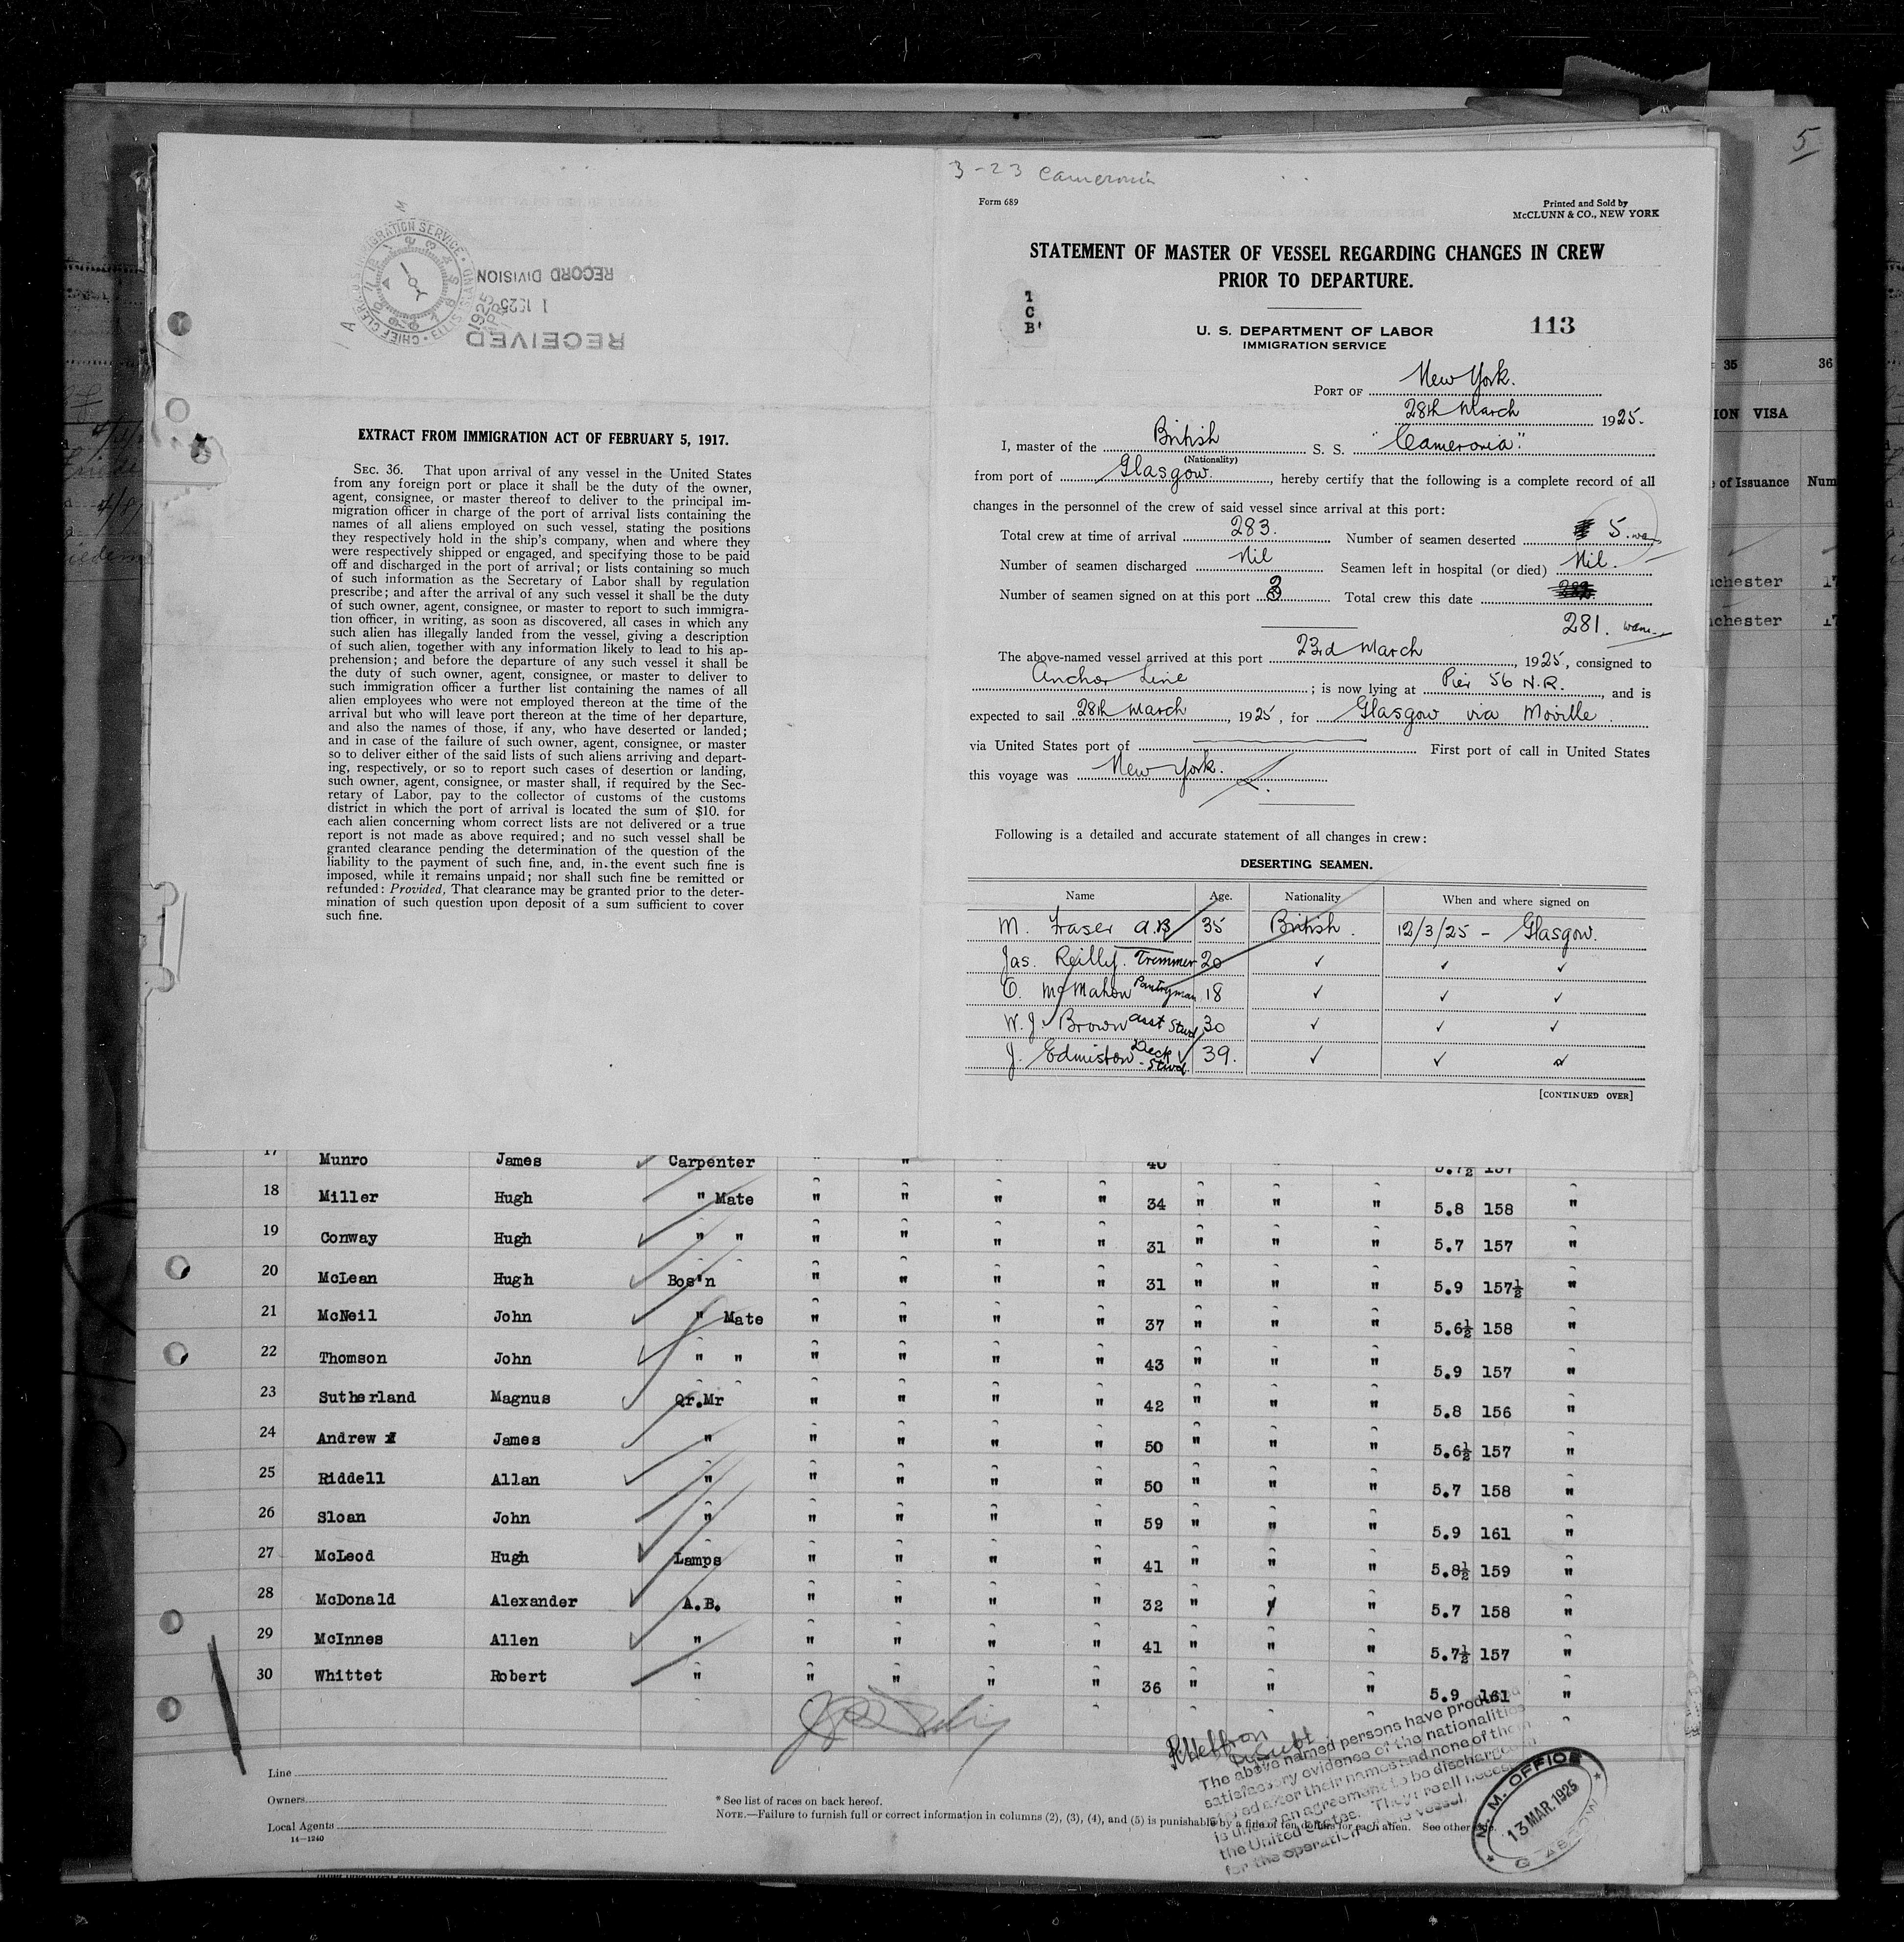 5
3-23 Cameronia
Form 689
Printed and Sold by
McCLUNN & CO., NEW YORK
STATEMENT OF MASTER OF VESSEL REGARDING CHANGES IN CREW
PRIOR TO DEPARTURE.
T
C
B
U. S. DEPARTMENT OF LABOR
IMMIGRATION SERVICE
113
PORT OF New York.
28th March 1925.
I, master of the British S. S. "Cameronia"
(Nationality)
from port of Glasgow. , hereby certify that the following is a complete record of all
changes in the personnel of the crew of said vessel since arrival at this port:
Total crew at time of arrival 283. Number of seamen deserted 5.
Number of seamen discharged Nil Seamen left in hospital (or died) Nil.
Number of seamen signed on at this port 3 Total crew this date
281.
The above-named vessel arrived at this port 23rd March , 1925, consigned to
Anchor Line ; is now lying at Pier 56 N.R. , and is
expected to sail 28th March , 1925, for Glasgow via Moville.
via United States port of First port of call in United States
this voyage was New York.
Following is a detailed and accurate statement of all changes in crew:
DESERTING SEAMEN.
Name Age. Nationality When and where signed on
M. Fraser A.B 35 British. 12/3/25 - Glasgow.
Jas. Reilly. Trimmer 20 ✓ ✓ ✓
C. McMahon Pantryman 18 ✓ ✓ ✓
W. J. Brown Asst Stwd 30 ✓ ✓ ✓
J. Edmiston Deck Stwd. 39. ✓ ✓ ✓
[CONTINUED OVER]
CHIEF CLERK U.S. IMMIGRATION SERVICE • ELLIS ISLAND
RECORD DIVISION
1 1925
RECEIVED
EXTRACT FROM IMMIGRATION ACT OF FEBRUARY 5, 1917.
SEC. 36. That upon arrival of any vessel in the United States
from any foreign port or place it shall be the duty of the owner,
agent, consignee, or master thereof to deliver to the principal im-
migration officer in charge of the port of arrival lists containing the
names of all aliens employed on such vessel, stating the positions
they respectively hold in the ship's company, when and where they
were respectively shipped or engaged, and specifying those to be paid
off and discharged in the port of arrival; or lists containing so much
of such information as the Secretary of Labor shall by regulation
prescribe; and after the arrival of any such vessel it shall be the duty
of such owner, agent, consignee, or master to report to such immigra-
tion officer, in writing, as soon as discovered, all cases in which any
such alien has illegally landed from the vessel, giving a description
of such alien, together with any information likely to lead to his ap-
prehension; and before the departure of any such vessel it shall be
the duty of such owner, agent, consignee, or master to deliver to
such immigration officer a further list containing the names of all
alien employees who were not employed thereon at the time of the
arrival but who will leave port thereon at the time of her departure,
and also the names of those, if any, who have deserted or landed;
and in case of the failure of such owner, agent, consignee, or master
so to deliver either of the said lists of such aliens arriving and depart-
ing, respectively, or so to report such cases of desertion or landing,
such owner, agent, consignee, or master shall, if required by the Sec-
retary of Labor, pay to the collector of customs of the customs
district in which the port of arrival is located the sum of $10. for
each alien concerning whom correct lists are not delivered or a true
report is not made as above required; and no such vessel shall be
granted clearance pending the determination of the question of the
liability to the payment of such fine, and, in the event such fine is
imposed, while it remains unpaid; nor shall such fine be remitted or
refunded: Provided, That clearance may be granted prior to the deter-
mination of such question upon deposit of a sum sufficient to cover
such fine.
35 36
ION VISA
of Issuance Num
chester 17
chester 17
17 Munro James Carpenter " " 40 5.7½ 157
18 Miller Hugh " Mate " " " " 34 " " " 5.8 158 "
19 Conway Hugh " " " " " " 31 " " " 5.7 157 "
20 McLean Hugh Bos'n " " " " 31 " " " 5.9 157½ "
21 McNeil John " Mate " " " " 37 " " " 5.6½ 158 "
22 Thomson John " " " " " " 43 " " " 5.9 157 "
23 Sutherland Magnus Qr.Mr " " " " 42 " " " 5.8 156 "
24 Andrew James " " " " " 50 " " " 5.6½ 157 "
25 Riddell Allan " " " " " 50 " " " 5.7 158 "
26 Sloan John " " " " " 59 " " " 5.9 161 "
27 McLeod Hugh Lamps " " " " 41 " " " 5.8½ 159 "
28 McDonald Alexander A.B. " " " " 32 " " " 5.7 158 "
29 McInnes Allen " " " " " 41 " " " 5.7½ 157 "
30 Whittet Robert " " " " " 36 " " " 5.9 161 "
Line
Owners
Local Agents
14—1240
* See list of races on back hereof.
NOTE.—Failure to furnish full or correct information in columns (2), (3), (4), and (5) is punishable by a fine of ten dollars for each alien. See other side.
The above named persons have produced
satisfactory evidence of the nationalities
stated after their names and none of them
is under an agreement to be discharged in
the United States. They are all necessary
for the operation of the vessel.
M. M. OFFICE
13 MAR. 1925
GLASGOW